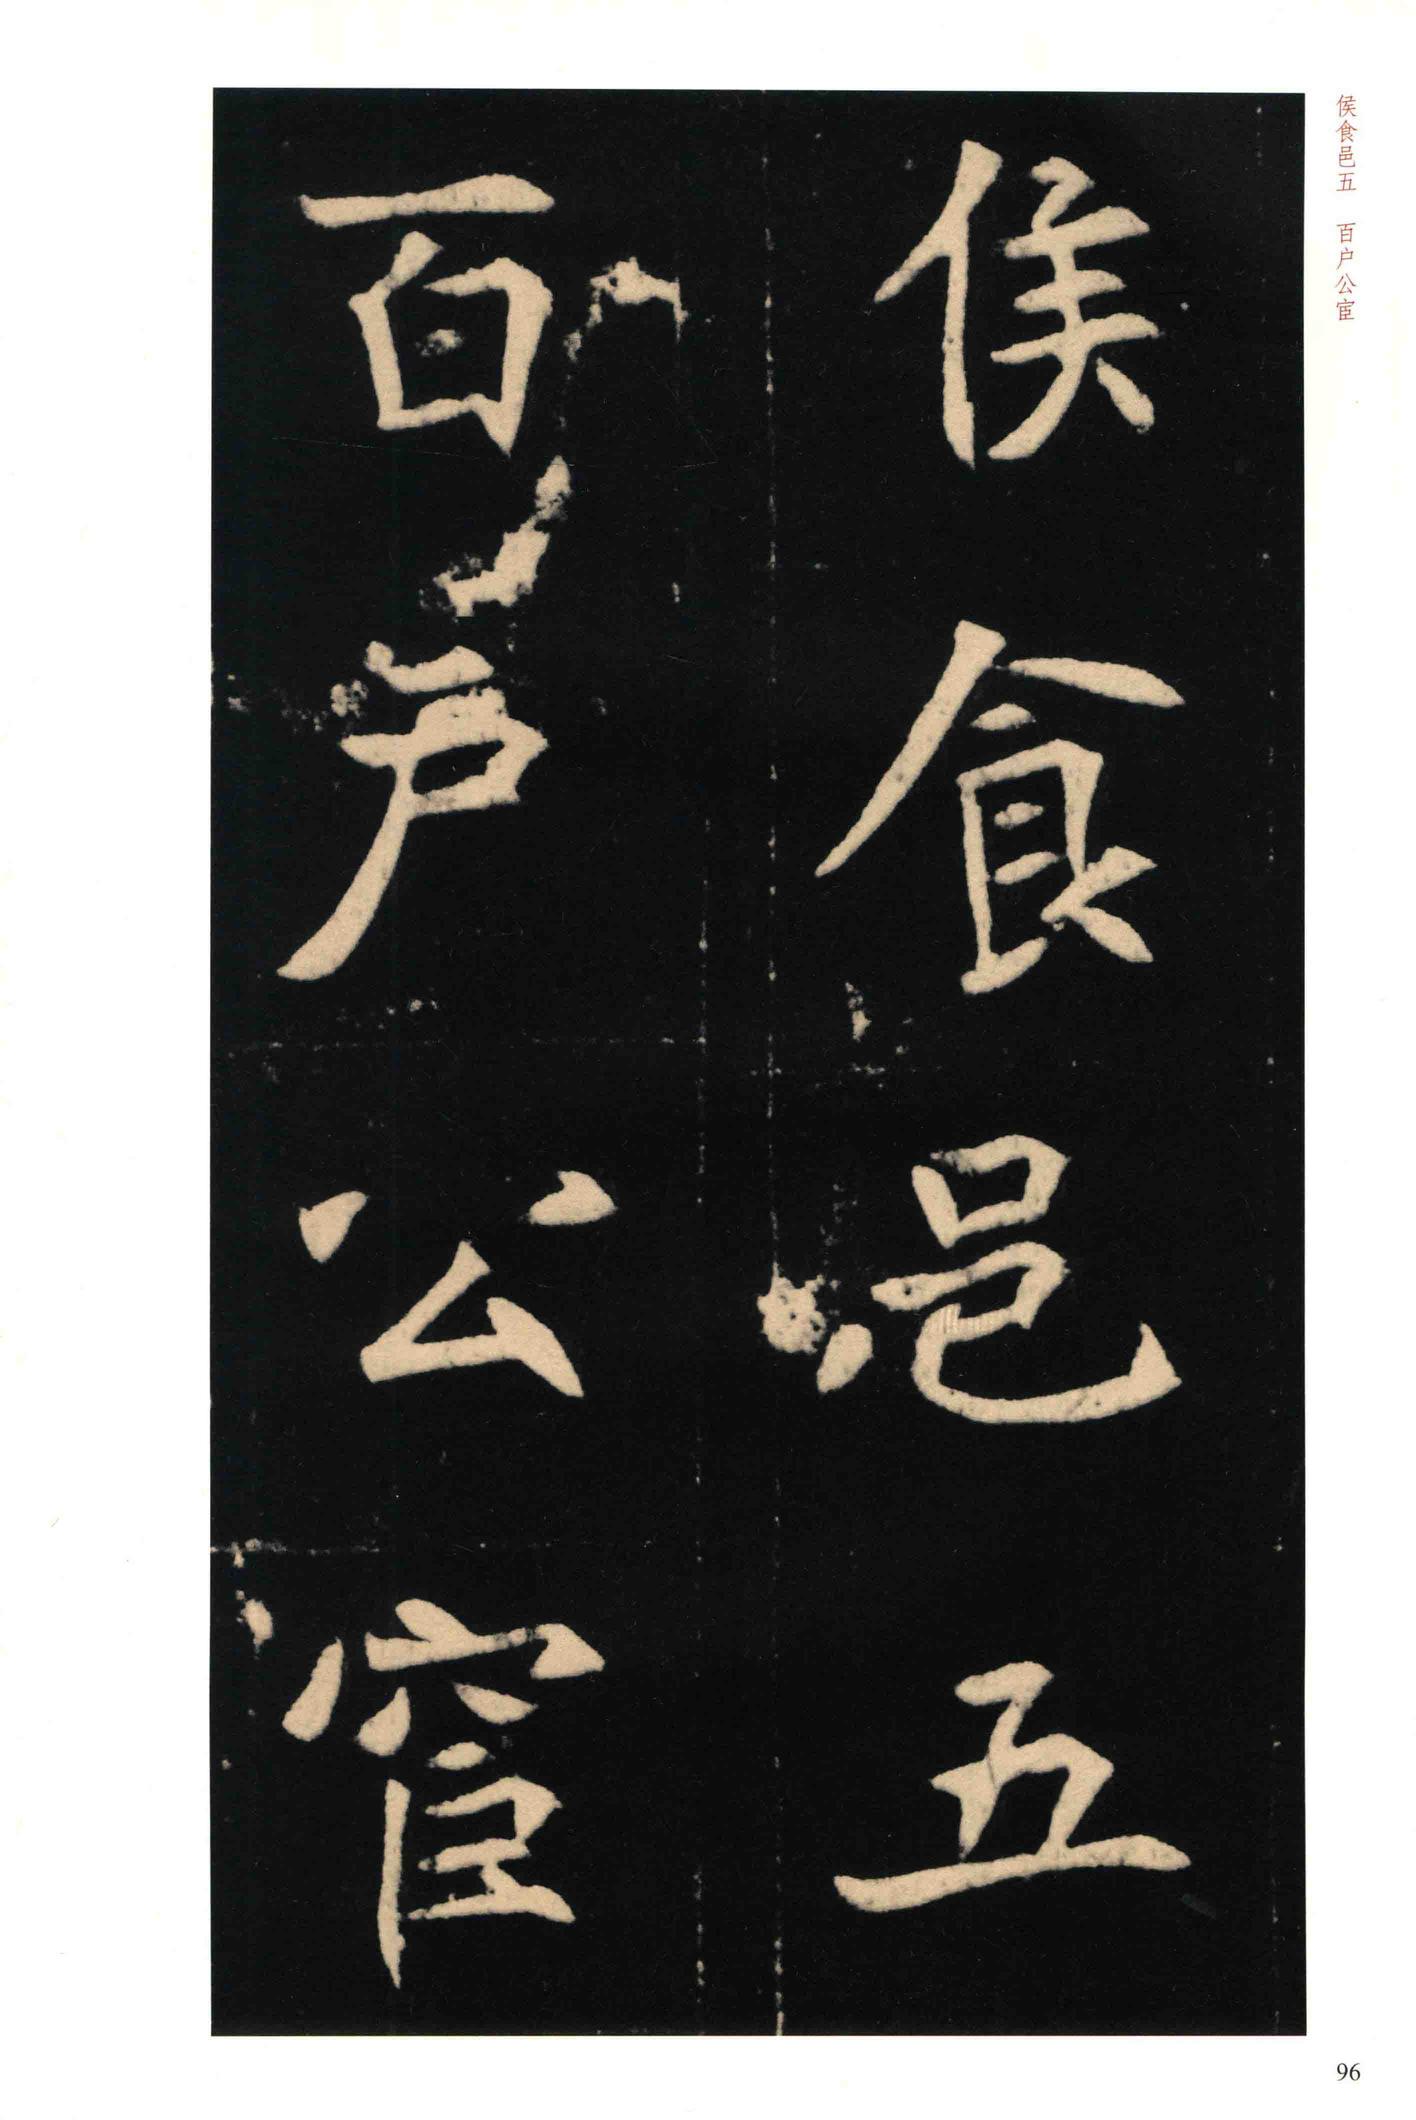 侯食邑五
百户公宦
侯食邑五 百户公宦
96